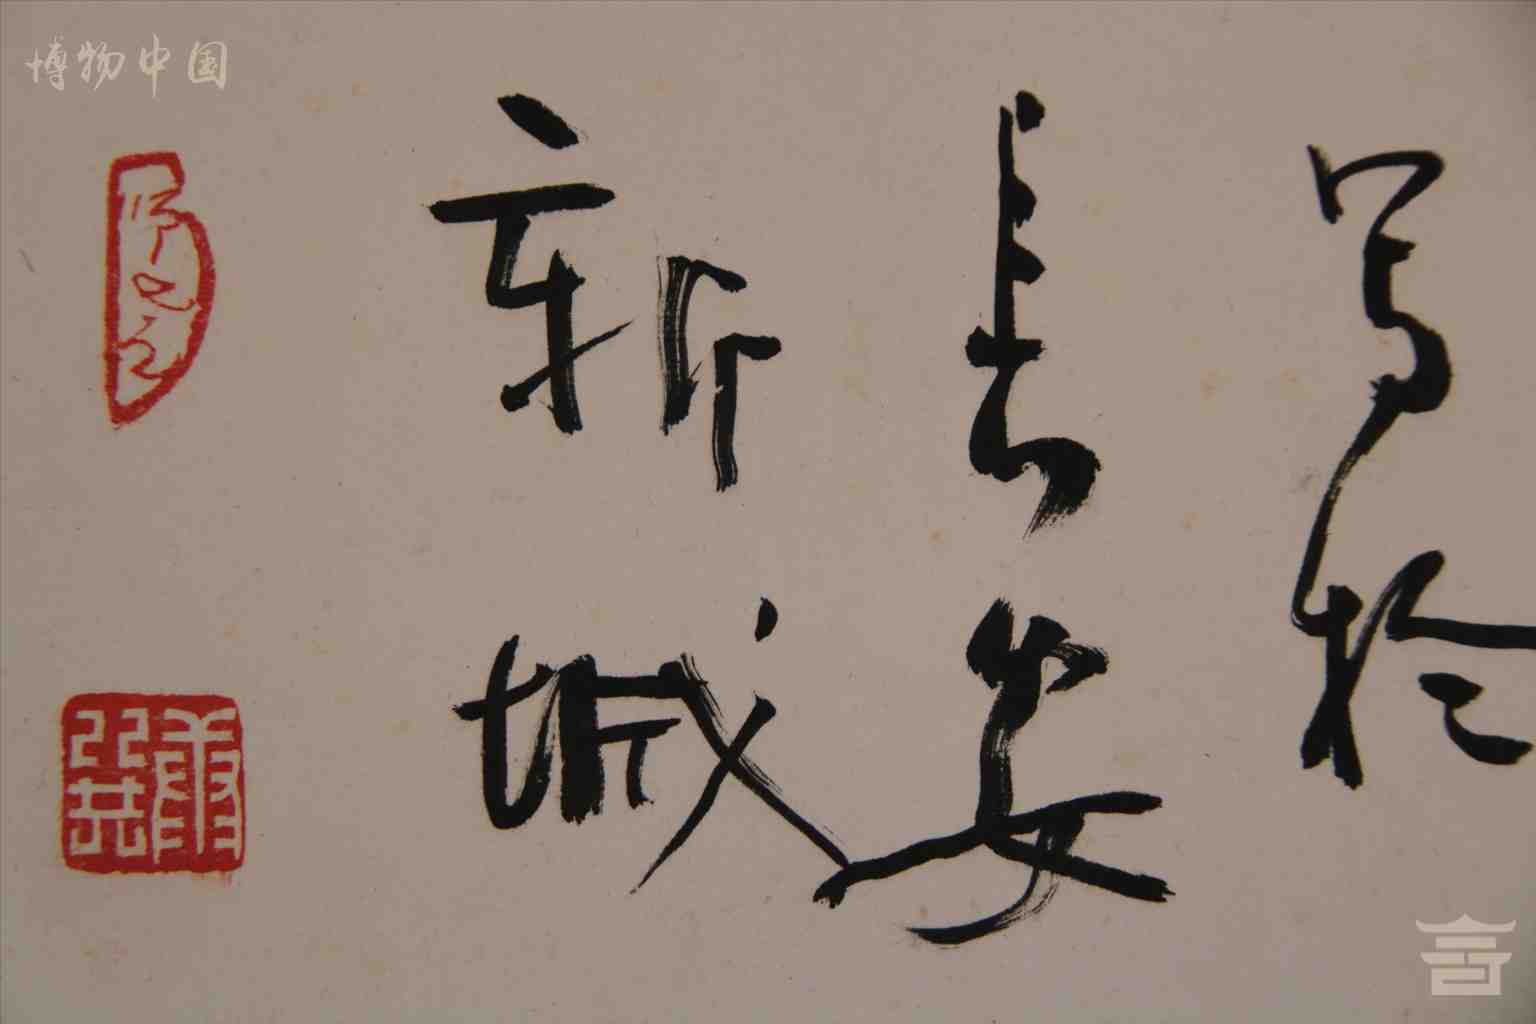 写於
長安
新城
博物中国